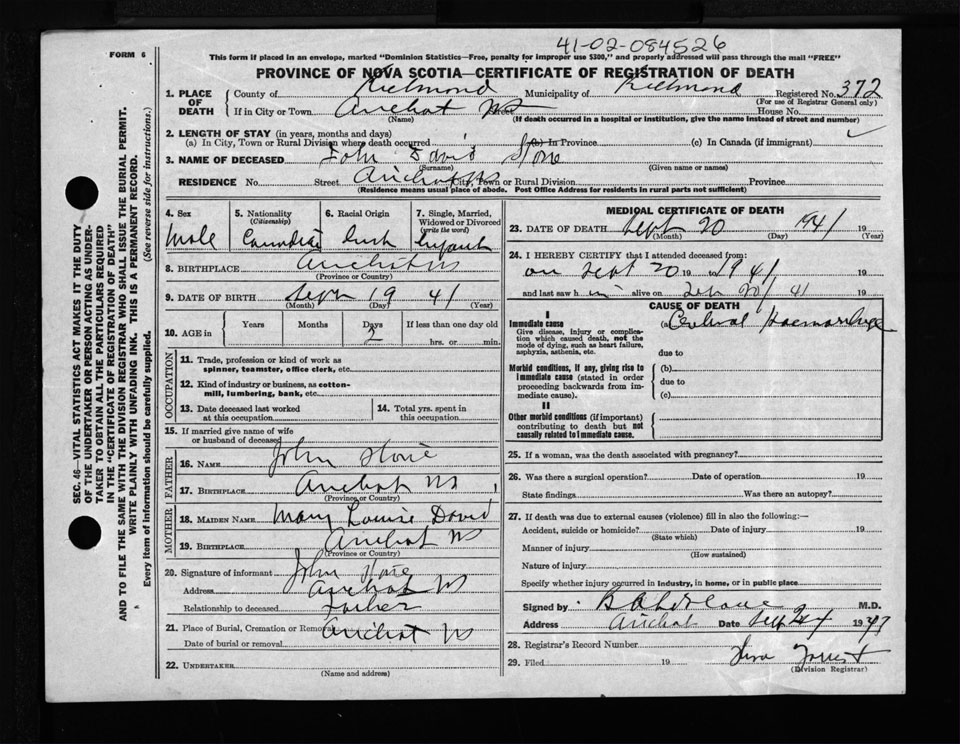 41-02-084526
FORM 6
This form if placed in an envelope, marked "Dominion Statistics—Free, penalty for improper use $300," and properly addressed will pass through the mail "FREE"
PROVINCE OF NOVA SCOTIA—CERTIFICATE OF REGISTRATION OF DEATH
1. PLACE OF DEATH
County of Richmond Municipality of Richmond Registered No. 372
(For use of Registrar General only)
If in City or Town Arichat NS Street House No.
(Name) (If death occurred in a hospital or institution, give the name instead of street and number)
2. LENGTH OF STAY (in years, months and days)
(a) In City, Town or Rural Division where death occurred (b) In Province (c) In Canada (if immigrant)
3. NAME OF DECEASED John David
(Surname) (Given name or names)
RESIDENCE No. Street Arichat NS City, Town or Rural Division Province
(Residence means usual place of abode. Post Office Address for residents in rural parts not sufficient)
4. Sex
Male
5. Nationality
(Citizenship)
Canadian
6. Racial Origin
7. Single, Married, Widowed or Divorced
(write the word)
Infant
8. BIRTHPLACE Arichat NS
(Province or Country)
9. DATE OF BIRTH Sept 19 41
(Month) (Day) (Year)
10. AGE in
Years Months Days If less than one day old
2 hrs. or min.
OCCUPATION
11. Trade, profession or kind of work as spinner, teamster, office clerk, etc.
12. Kind of industry or business, as cotton-mill, lumbering, bank, etc.
13. Date deceased last worked at this occupation
14. Total yrs. spent in this occupation
15. If married give name of wife or husband of deceased
FATHER
16. NAME John
17. BIRTHPLACE Arichat NS
(Province or Country)
MOTHER
18. MAIDEN NAME Mary Louise David
19. BIRTHPLACE Arichat NS
(Province or Country)
20. Signature of informant John
Address Arichat NS
Relationship to deceased Father
21. Place of Burial, Cremation or Removal Arichat NS
Date of burial or removal
22. UNDERTAKER
(Name and address)
MEDICAL CERTIFICATE OF DEATH
23. DATE OF DEATH Sept 20 1941 19
(Month) (Day) (Year)
24. I HEREBY CERTIFY that I attended deceased from:
on Sept 20 19 to 1941 19
and last saw h im alive on Sep 20/41 19
CAUSE OF DEATH
I
Immediate cause
Give disease, injury or complication which caused death, not the mode of dying, such as heart failure, asphyxia, asthenia, etc.
(a) Cerebral Haemorrhage
due to
Morbid conditions, if any, giving rise to immediate cause (stated in order proceeding backwards from immediate cause).
(b)
due to
(c)
II
Other morbid conditions (if important) contributing to death but not causally related to immediate cause.
25. If a woman, was the death associated with pregnancy?
26. Was there a surgical operation? Date of operation 19
State findings Was there an autopsy?
27. If death was due to external causes (violence) fill in also the following:—
Accident, suicide or homicide? Date of injury 19
(State which)
Manner of injury
(How sustained)
Nature of injury
Specify whether injury occurred in industry, in home, or in public place
Signed by M.D.
Address Arichat Date Sept 24 19
28. Registrar's Record Number
29. Filed 19
(Division Registrar)
SEC. 46—VITAL STATISTICS ACT MAKES IT THE DUTY OF THE UNDERTAKER OR PERSON ACTING AS UNDERTAKER TO OBTAIN ALL THE PARTICULARS REQUIRED IN THE "CERTIFICATE OF REGISTRATION OF DEATH"
AND TO FILE THE SAME WITH THE DIVISION REGISTRAR WHO SHALL ISSUE THE BURIAL PERMIT.
WRITE PLAINLY WITH UNFADING INK. THIS IS A PERMANENT RECORD.
Every item of information should be carefully supplied. (See reverse side for instructions.)